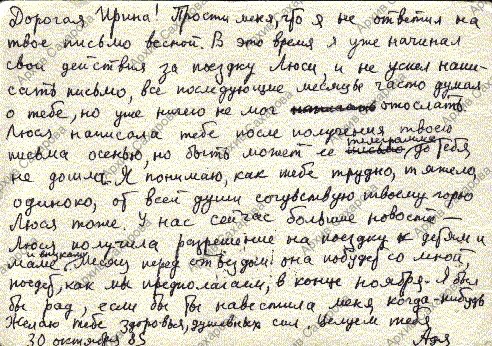 Дорогая Ирина! Прости меня, что я не ответил на
твое письмо весной. В это время я уже начинал
свои действия за поездку Люси, и не успел напи-
сать письмо, все последующие месяцы часто думал
о тебе, но уже ничего не мог отослать.
Люся написала тебе после получения твоего
письма осенью, но быть может ее письмо телеграмма до тебя
не дошла. Я понимаю, как тебе трудно, тяжело,
одиноко, от всей души сочувствую твоему горю
Люся тоже. У нас сейчас большие новости —
Люся получила разрешение на поездку к детям и
маме и внукам. Месяц перед отъездом она побудет со мной
поедет, как мы предполагаем, в конце ноября. Я был
бы рад, если бы ты навестила меня когда-нибудь
Желаю тебе здоровья, душевных сил. Целуем тебя
30 октября 85 Адя
Архив Сахарова